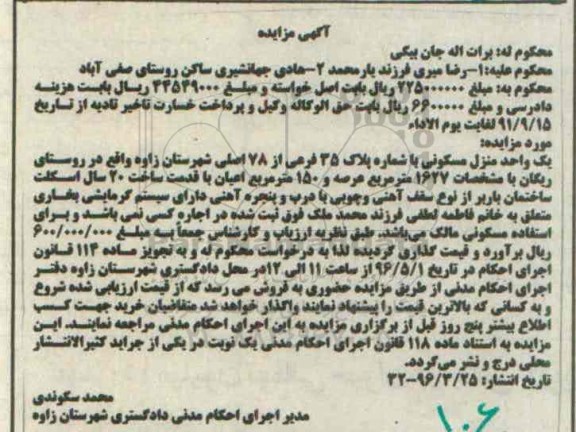 آگهی مزایده
محکوم له: برات اله جان بیگی
محکوم علیه:۱-رضا میری فرزند یارمحمد ۲-هادی جهانشیری ساکن روستای صفی آباد
محکوم به: مبلغ ۲۲۵۰۰۰۰۰۰ ریال بابت اصل خواسته و مبلغ ۴۴۵۴۹۰۰۰ ریال بابت هزینه
دادرسی و مبلغ ۶۶۰۰۰۰۰ ریال بابت حق الوکاله وکیل و پرداخت خسارت تاخیر تادیه از تاریخ
۹۱/۹/۱۵ لغایت یوم الاداء
مورد مزایده:
یک واحد منزل مسکونی با شماره پلاک ۳۵ فرعی از ۷۸ اصلی شهرستان زاوه واقع در روستای
ریگان با مشخصات ۱۶۲۷ مترمربع عرصه و ۱۵۰ مترمربع اعیان با قدمت ساخت ۲۰ سال اسکلت
ساختمان باربر از نوع سقف آهنی وچوبی با درب و پنجره آهنی دارای سیستم گرمایشی بخاری
متعلق به خانم فاطمه لطفی فرزند محمد ملک فوق ثبت شده در اجاره کسی نمی باشد و برای
استفاده مسکونی مالک می‌باشد. طبق نظریه ارزیاب و کارشناس جمعاً به مبلغ ۶۰۰/۰۰۰/۰۰۰
ریال برآورد و قیمت گذاری گردیده لذا به درخواست محکوم له و به تجویز ماده ۱۱۴ قانون
اجرای احکام در تاریخ ۹۶/۵/۱ از ساعت ۱۱ الی ۱۲در محل دادگستری شهرستان زاوه دفتر
اجرای احکام مدنی از طریق مزایده حضوری به فروش می رسد که از قیمت ارزیابی شده شروع
و به کسانی که بالاترین قیمت را پیشنهاد نمایند واگذار خواهد شد متقاضیان خرید جهت کسب
اطلاع بیشتر پنج روز قبل از برگزاری مزایده به این اجرای احکام مدنی مراجعه نمایند. این
مزایده به استناد ماده ۱۱۸ قانون اجرای احکام مدنی یک نوبت در یکی از جراید کثیرالانتشار
محلی درج و نشر می‌گردد.
تاریخ انتشار: ۹۶/۳/۲۵-۳۲
محمد سکوندی
مدیر اجرای احکام مدنی دادگستری شهرستان زاوه
۱۰۶